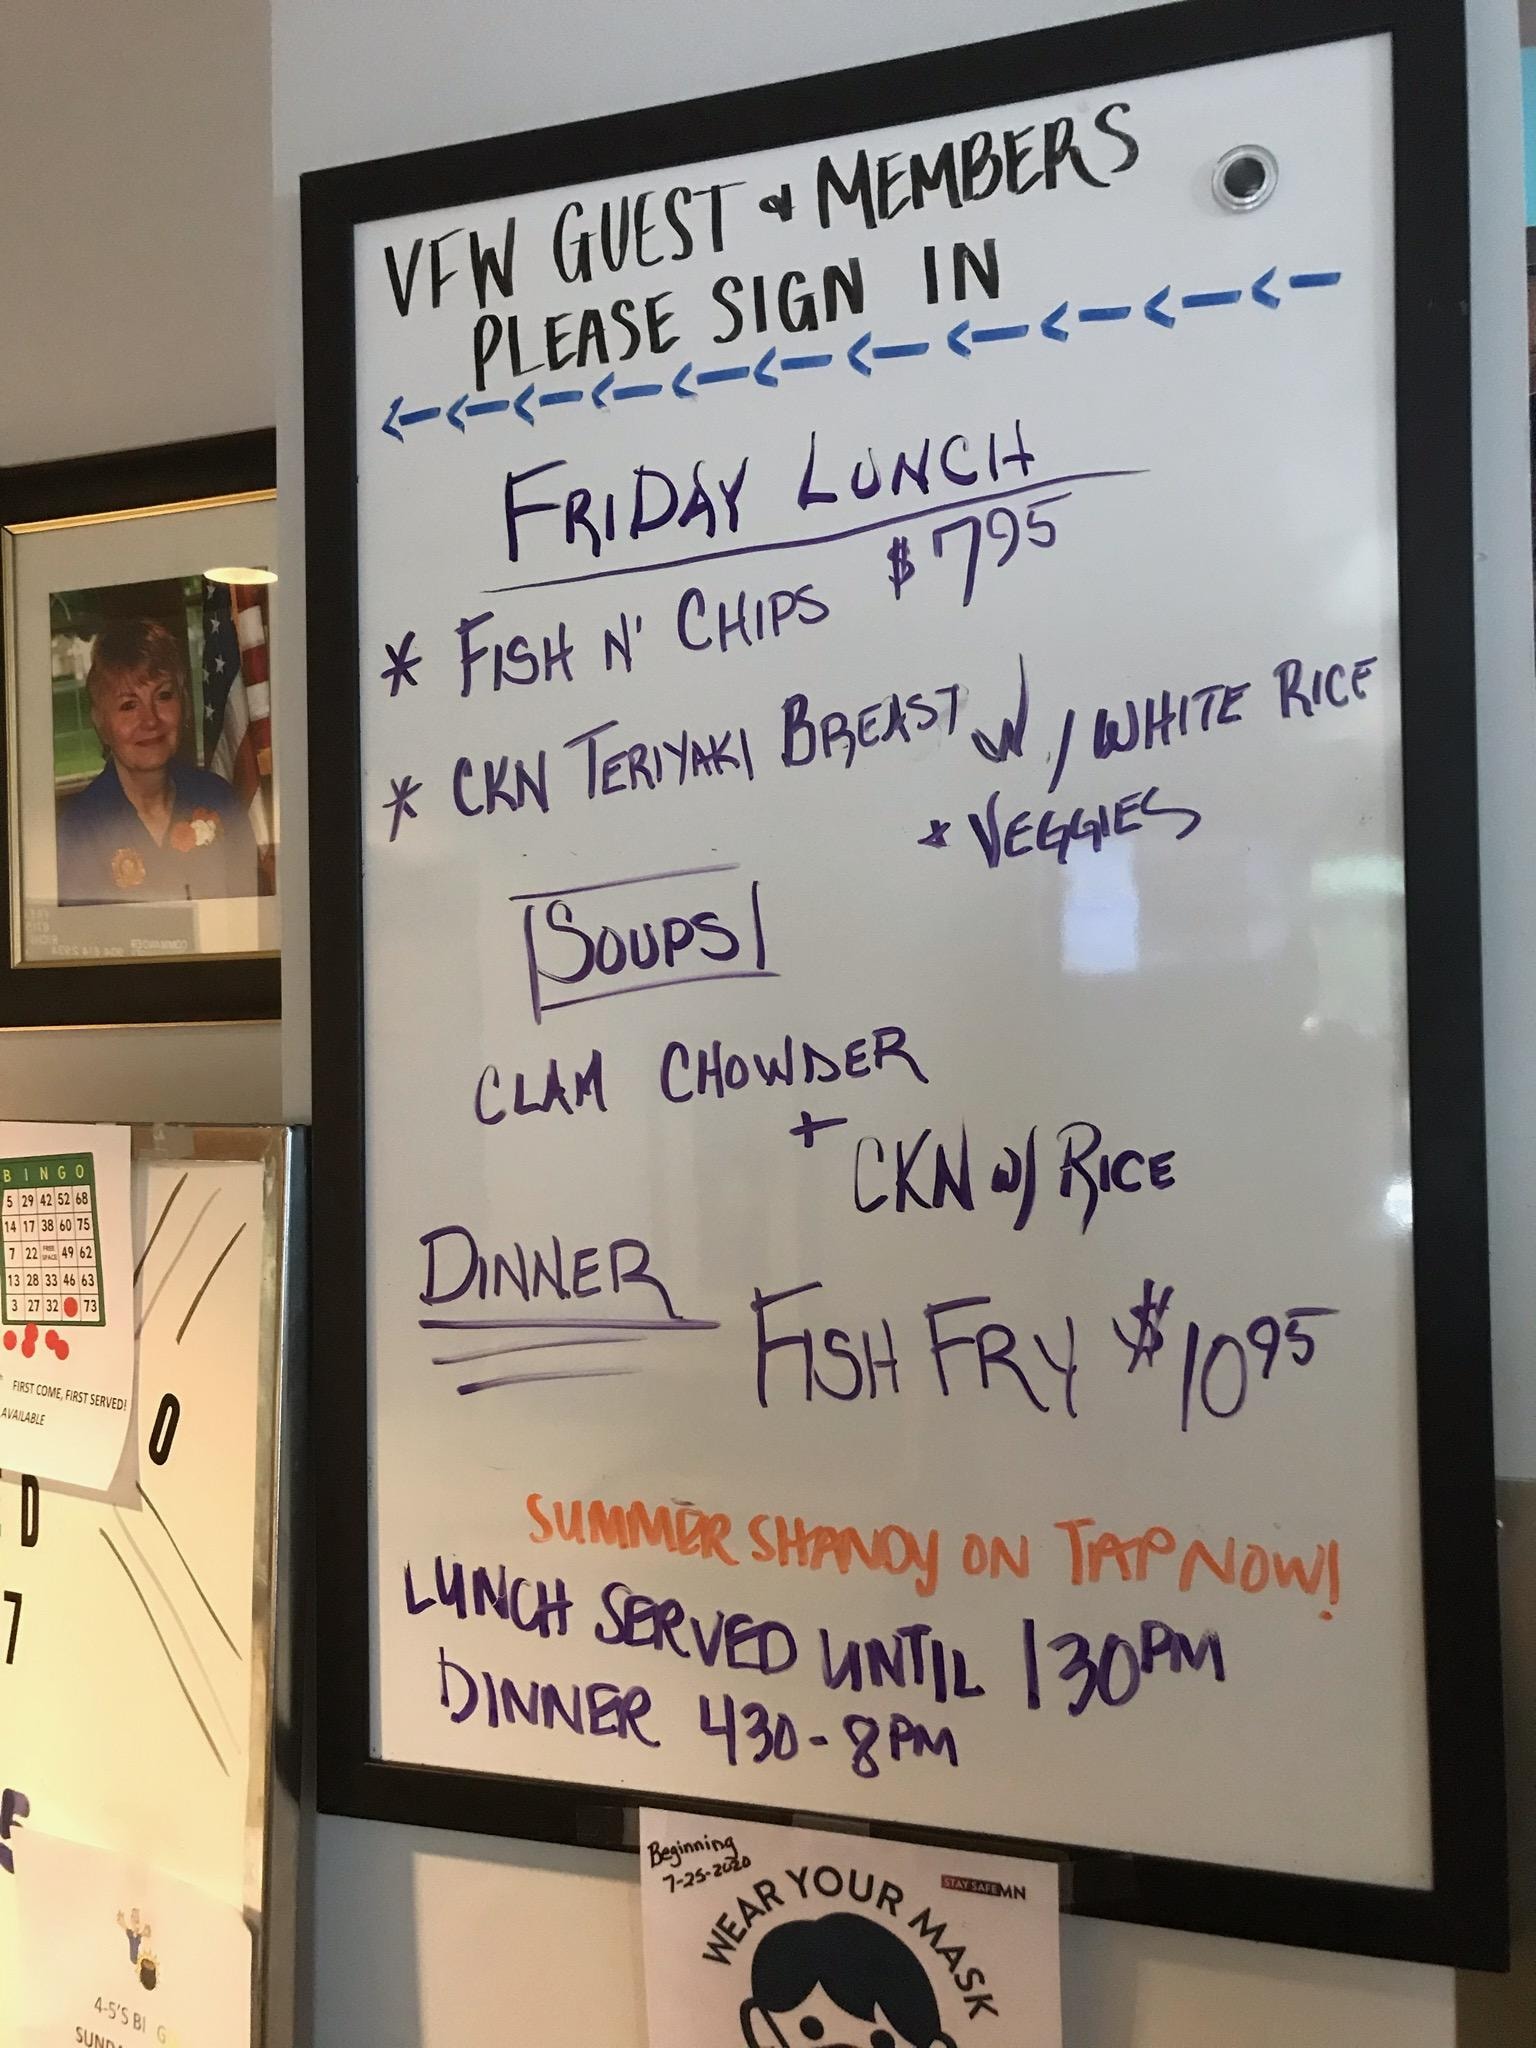 VFW GUEST & MEMBERS
PLEASE SIGN IN
FRIDAY LUNCH
* FISH N' CHIPS $795
* CKN TERIYAKI BREAST W/ WHITE RICE
+ VEGGIES
SOUPS
CLAM CHOWDER
+ CKN W/ RICE
DINNER
FISH FRY $1095
SUMMER SHANDY ON TAP NOW!
LUNCH SERVED UNTIL 130PM
DINNER 430-8PM
Beginning
7-25-2020
STAY SAFE MN
WEAR YOUR MASK
BINGO
5 29 42 52 68
14 17 38 60 75
7 22 FREE SPACE 49 62
13 28 33 46 63
3 27 32 73
FIRST COME, FIRST SERVED!
AVAILABLE
O
D
7
4-5'S BI G